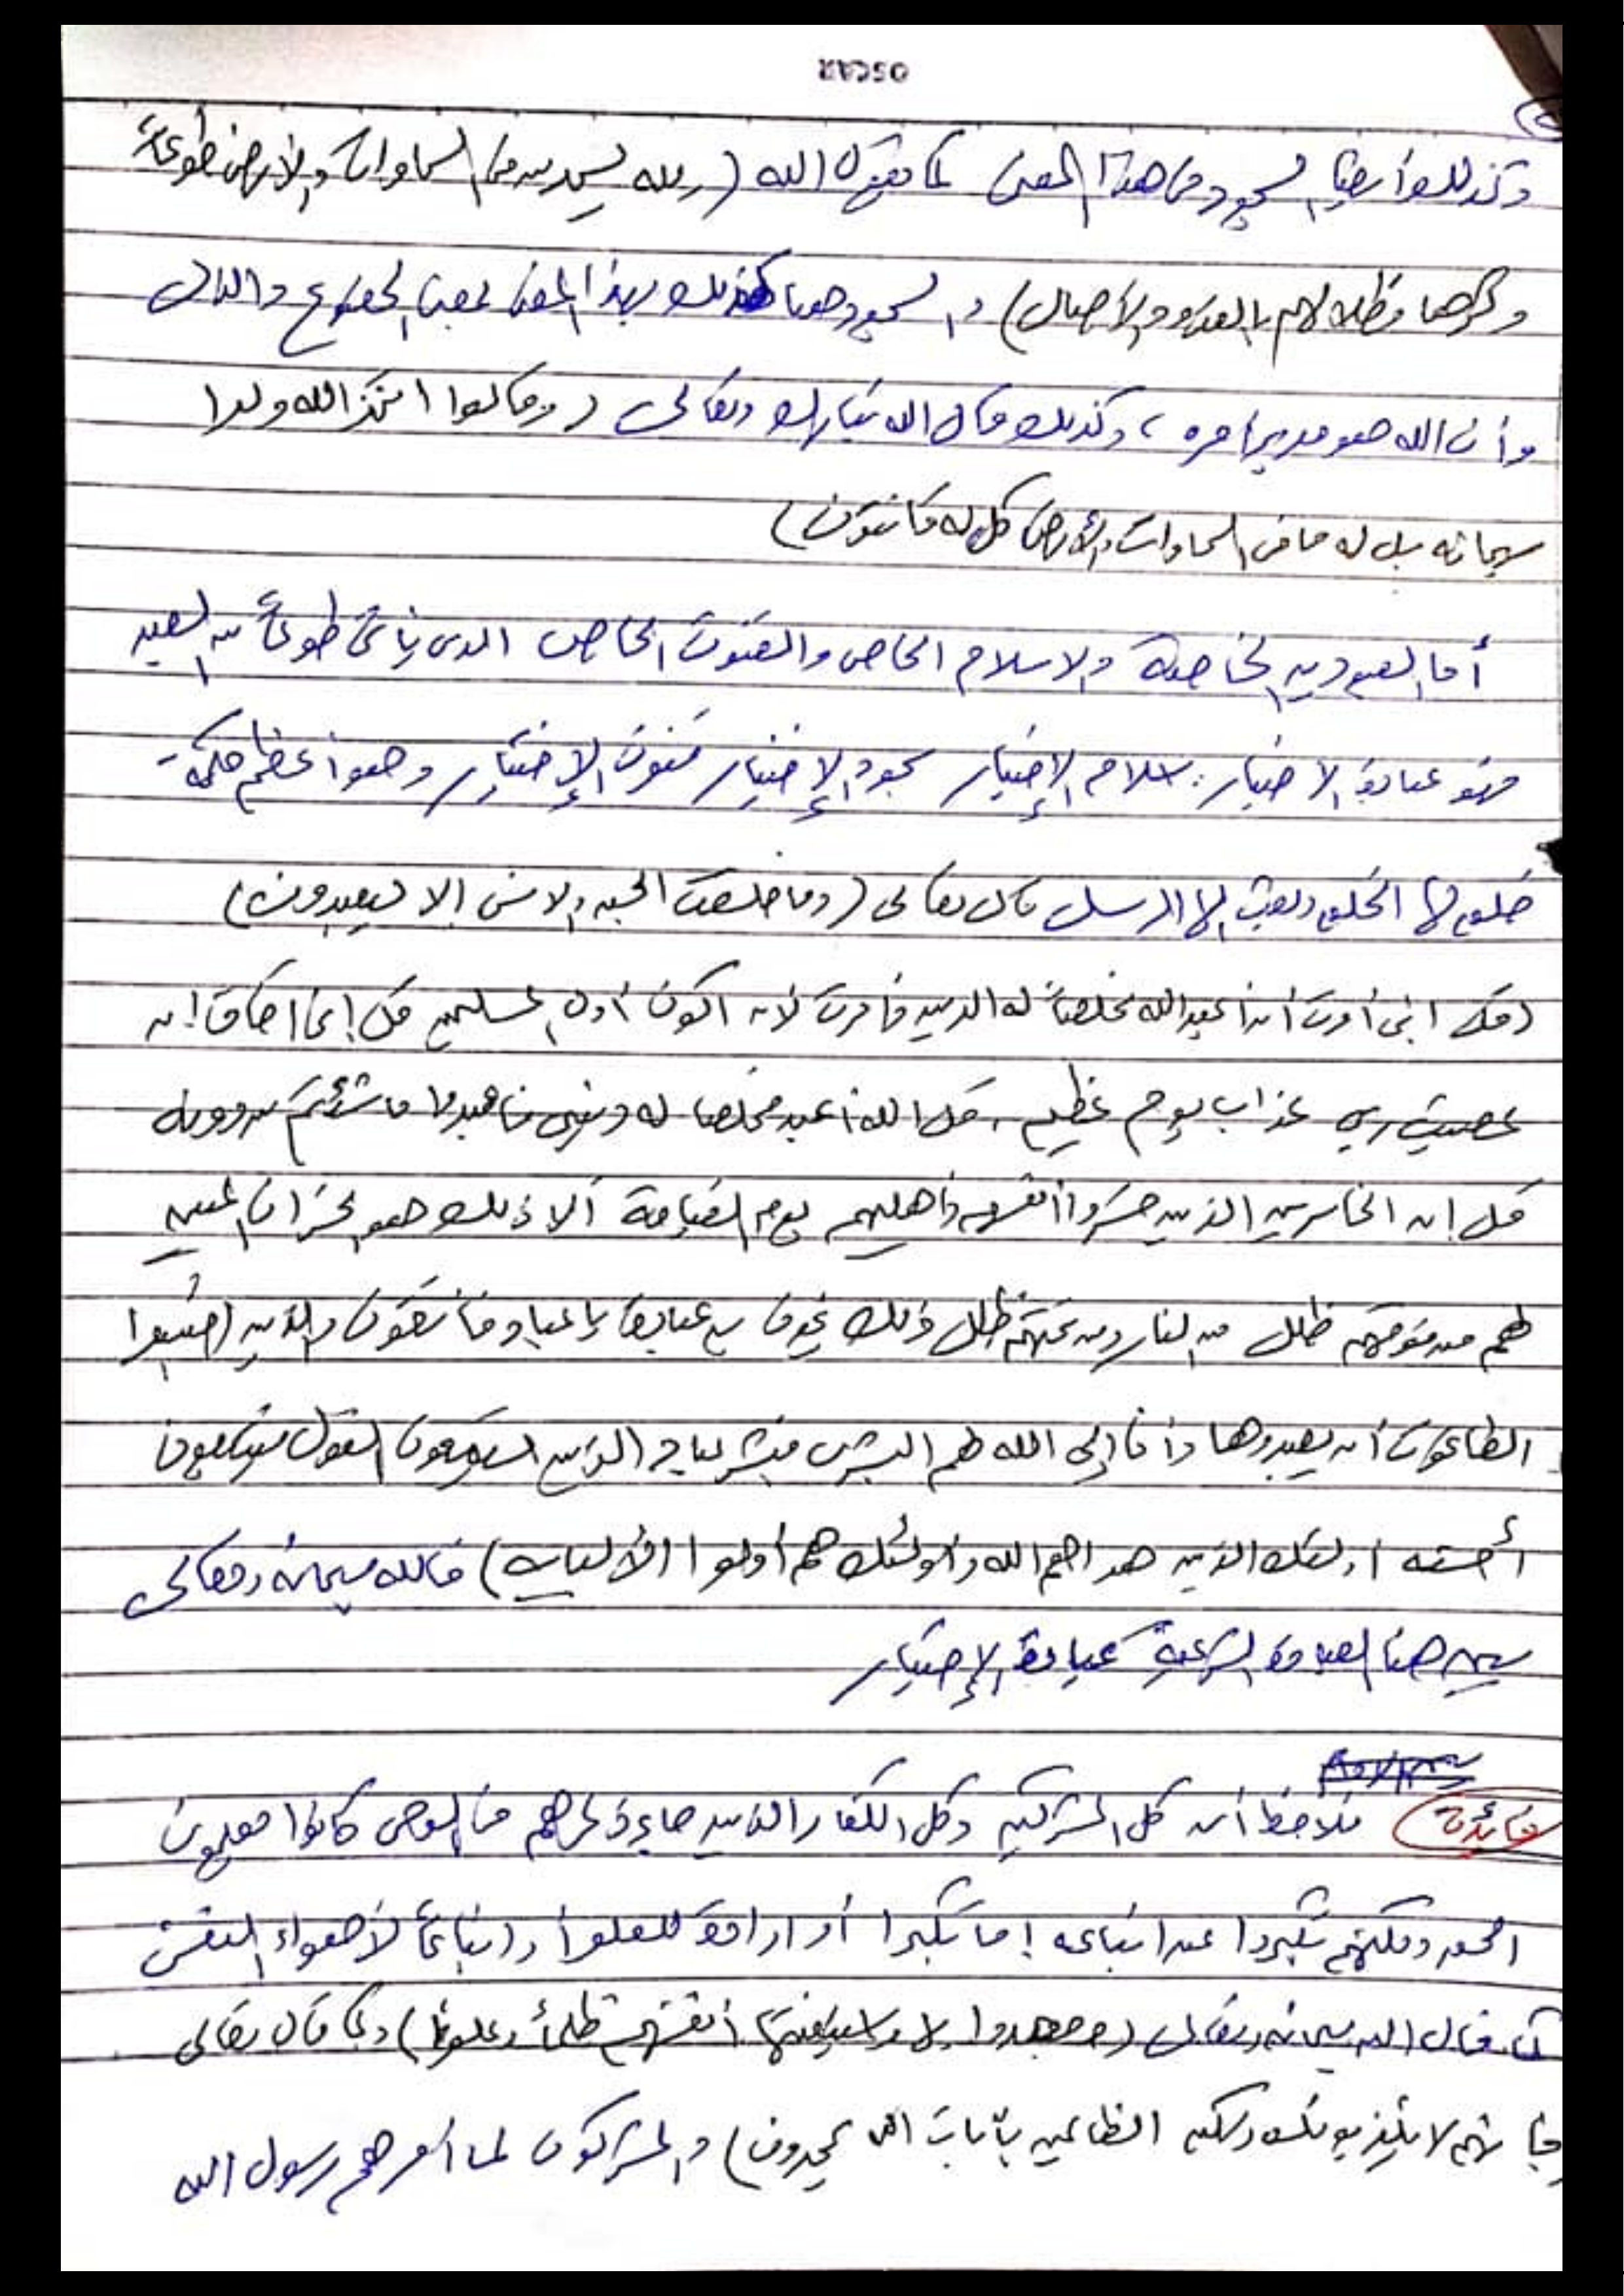 OSCAR
وكذلك أيضا السجود في هذا المعنى كما يقول الله (ولله يسجد من في السماوات والأرض طوعاً
وكرها وظلالهم بالغدو والأصال) والسجود هنا كذلك بهذا المعنى بمعنى الخضوع والذل
وأن الله هو مدبر أمره ، وكذلك قال الله تبارك وتعالى (وقالوا اتخذ الله ولدا
سبحانه بل له ما في السماوات والأرض كل له قانتون)
أما العبودية الخاصة والاسلام الخاص والقنوت الخاص الذي يأتي طوعاً من العبد
فهو عبادة الاختيار. إسلام الإختيار سجود الإختيار قنوت الإختيار وهو أعظم حكمة
خلق لها الخلق وبعث لها الرسل قال تعالى (وما خلقت الجن والانس الا ليعبدون)
(قل اني أمرت أن أعبد الله مخلصاً له الدين وأمرت لأن اكون أول المسلمين قل إني اخاف إن
عصيت ربي عذاب يوم عظيم ، قل الله أعبد مخلصا له ديني فاعبدوا ما شئتم من دونه
قل إن الخاسرين الذين خسروا أنفسهم وأهليهم يوم القيامة ألا ذلك هو الخسران المبين
لهم من فوقهم ظلل من النار ومن تحتهم ظلل ذلك يخوف به عباده يا عباد فاتقون والذين اجتنبوا
الطاغوت أن يعبدوها وأنابوا إلى الله لهم البشرى فبشر عباد الذين يستمعون القول فيتبعون
أحسنه أولئك الذين هداهم الله وأولئك هم أولوا الألباب) فالله سبحانه وتعالى
سمى هنا العبادة الشرعية عبادة الإختيار
فائدة فلاحظ أن كل المشركين وكل الكفار الذين جاء ذكرهم في الوحي كانوا معلمون
الحق ولكنهم تكبروا عن اتباعه إما تكبرا أو ارادة للعلو أو اتباعاً لأهواء النفس
كما قال الله سبحانه وتعالى (وجحدوا بها واستيقنتها أنفسهم ظلماً وعلوا) وكما قال تعالى
فإنهم لا يكذبونك ولكن الظالمين بآيات الله يجحدون) والمشركون لما أمرهم رسول الله